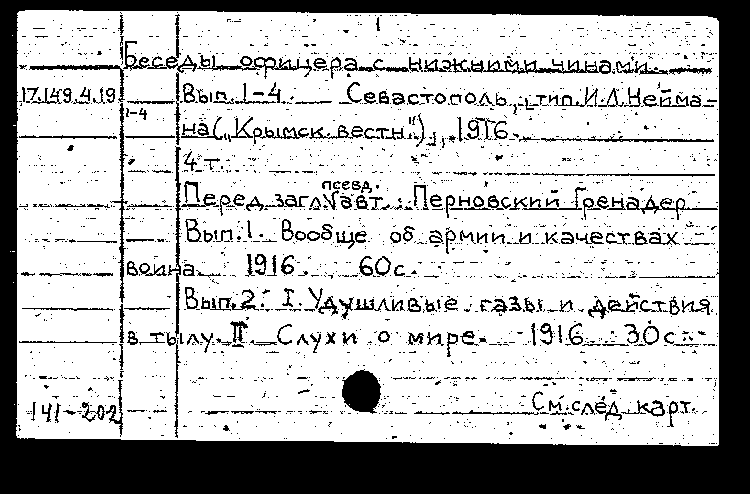 Беседы офицера с нижними чинами.
17.149.4.19 Вып. 1-4. Севастополь, тип. И.Л. Нейма-
1-4
на („Крымск. вестн."), 1916.
4 т.
псевд.
Перед загл. √ авт.: Перновский Гренадер
Вып. 1. Вообще об армии и качествах
воина 1916. 60 с.
Вып. 2. I. Удушливые газы и действия
в тылу. II. Слухи о мире. 1916 30 с.
См. след. карт.
141-202